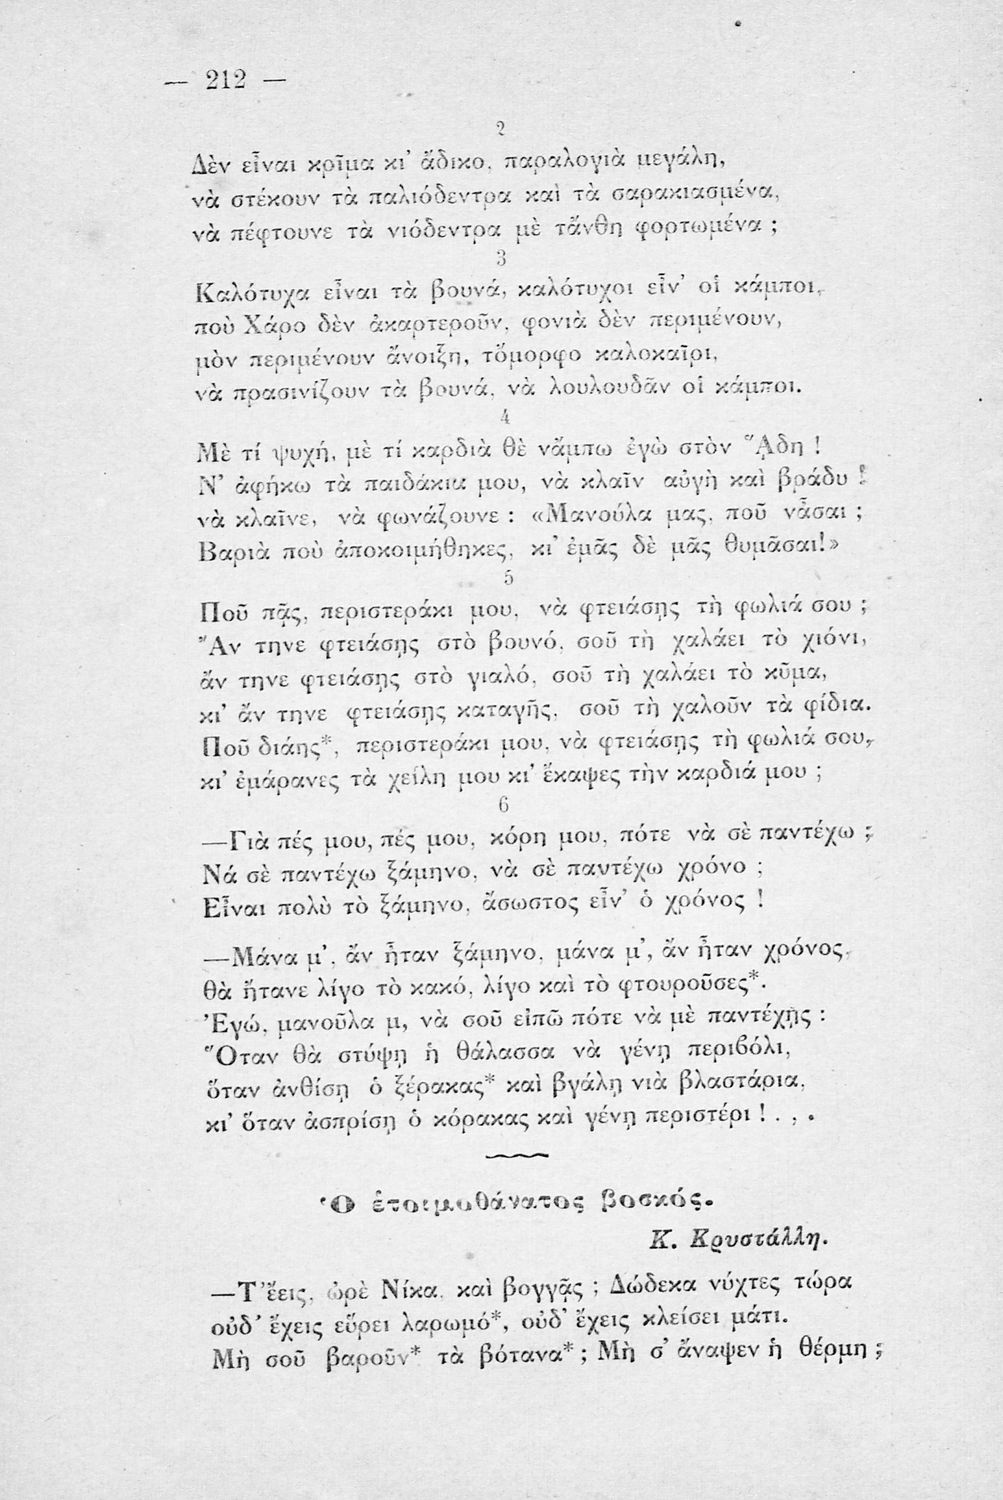 — 212 —
2
Δὲν εἶναι κρῖμα κι’ ἄδικο, παραλογιὰ μεγάλη,
νὰ στέκουν τὰ παλιόδεντρα καὶ τὰ σαρακιασμένα,
νὰ πέφτουνε τὰ νιόδεντρα μὲ τἄνθη φορτωμένα ;
3
Καλότυχα εἶναι τὰ βουνά, καλότυχοι εἶν’ οἱ κάμποι,
ποὺ Χάρο δὲν ἀκαρτεροῦν, φονιὰ δὲν περιμένουν,
μὸν περιμένουν ἄνοιξη, τὄμορφο καλοκαῖρι,
νὰ πρασινίζουν τὰ βουνά, νὰ λουλουδᾶν οἱ κάμποι.
4
Μὲ τί ψυχή, μὲ τί καρδιὰ θὲ νἄμπω ἐγὼ στὸν Ἅδη !
Ν’ ἀφήκω τὰ παιδάκια μου, νὰ κλαῖν αὐγὴ καὶ βράδυ !
νὰ κλαῖνε, νὰ φωνάζουνε : «Μανούλα μας, ποῦ νἆσαι ;
Βαριὰ ποὺ ἀποκοιμήθηκες, κι’ ἐμᾶς δὲ μᾶς θυμᾶσαι!»
5
Ποῦ πᾷς, περιστεράκι μου, νὰ φτειάσῃς τὴ φωλιά σου ;
Ἂν τηνε φτειάσῃς στὸ βουνό, σοῦ τὴ χαλάει τὸ χιόνι,
ἄν τηνε φτειάσῃς στὸ γιαλό, σοῦ τὴ χαλάει τὸ κῦμα,
κι’ ἄν τηνε φτειάσῃς καταγῆς, σοῦ τὴ χαλοῦν τὰ φίδια.
Ποῦ διάης*, περιστεράκι μου, νὰ φτειάσῃς τὴ φωλιά σου,
κι’ ἐμάρανες τὰ χείλη μου κι’ ἔκαψες τὴν καρδιά μου ;
6
—Γιὰ πές μου, πές μου, κόρη μου, πότε νὰ σὲ παντέχω ;
Νά σὲ παντέχω ξάμηνο, νὰ σὲ παντέχω χρόνο ;
Εἶναι πολὺ τὸ ξάμηνο, ἄσωστος εἶν’ ὁ χρόνος !
—Μάνα μ’, ἄν ἦταν ξάμηνο, μάνα μ’, ἄν ἦταν χρόνος,
θὰ ἤτανε λίγο τὸ κακό, λίγο καὶ τὸ φτουροῦσες*.
Ἐγώ, μανοῦλα μ, νὰ σοῦ εἰπῶ πότε νὰ μὲ παντέχῃς :
Ὅταν θὰ στύψῃ ἡ θάλασσα νὰ γένῃ περιβόλι,
ὅταν ἀνθίσῃ ὁ ξέρακας* καὶ βγάλῃ νιὰ βλαστάρια,
κι’ ὅταν ἀσπρίσῃ ὁ κόρακας καὶ γένῃ περιστέρι ! . , .
Ὁ ἑτοιμοθάνατος βοσκός.
Κ. Κρυστάλλη.
—Τ’ἔεις, ὠρὲ Νίκα, καὶ βογγᾷς ; Δώδεκα νύχτες τώρα
οὐδ’ ἔχεις εὕρει λαρωμό*, οὐδ’ ἔχεις κλείσει μάτι.
Μὴ σοῦ βαροῦν* τὰ βότανα* ; Μὴ σ’ ἄναψεν ἡ θέρμη ;